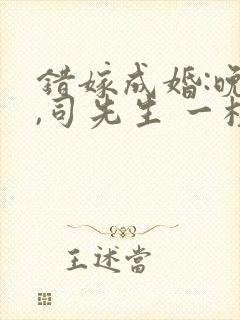 错嫁成婚:晚
,司先生 一枝
王述當